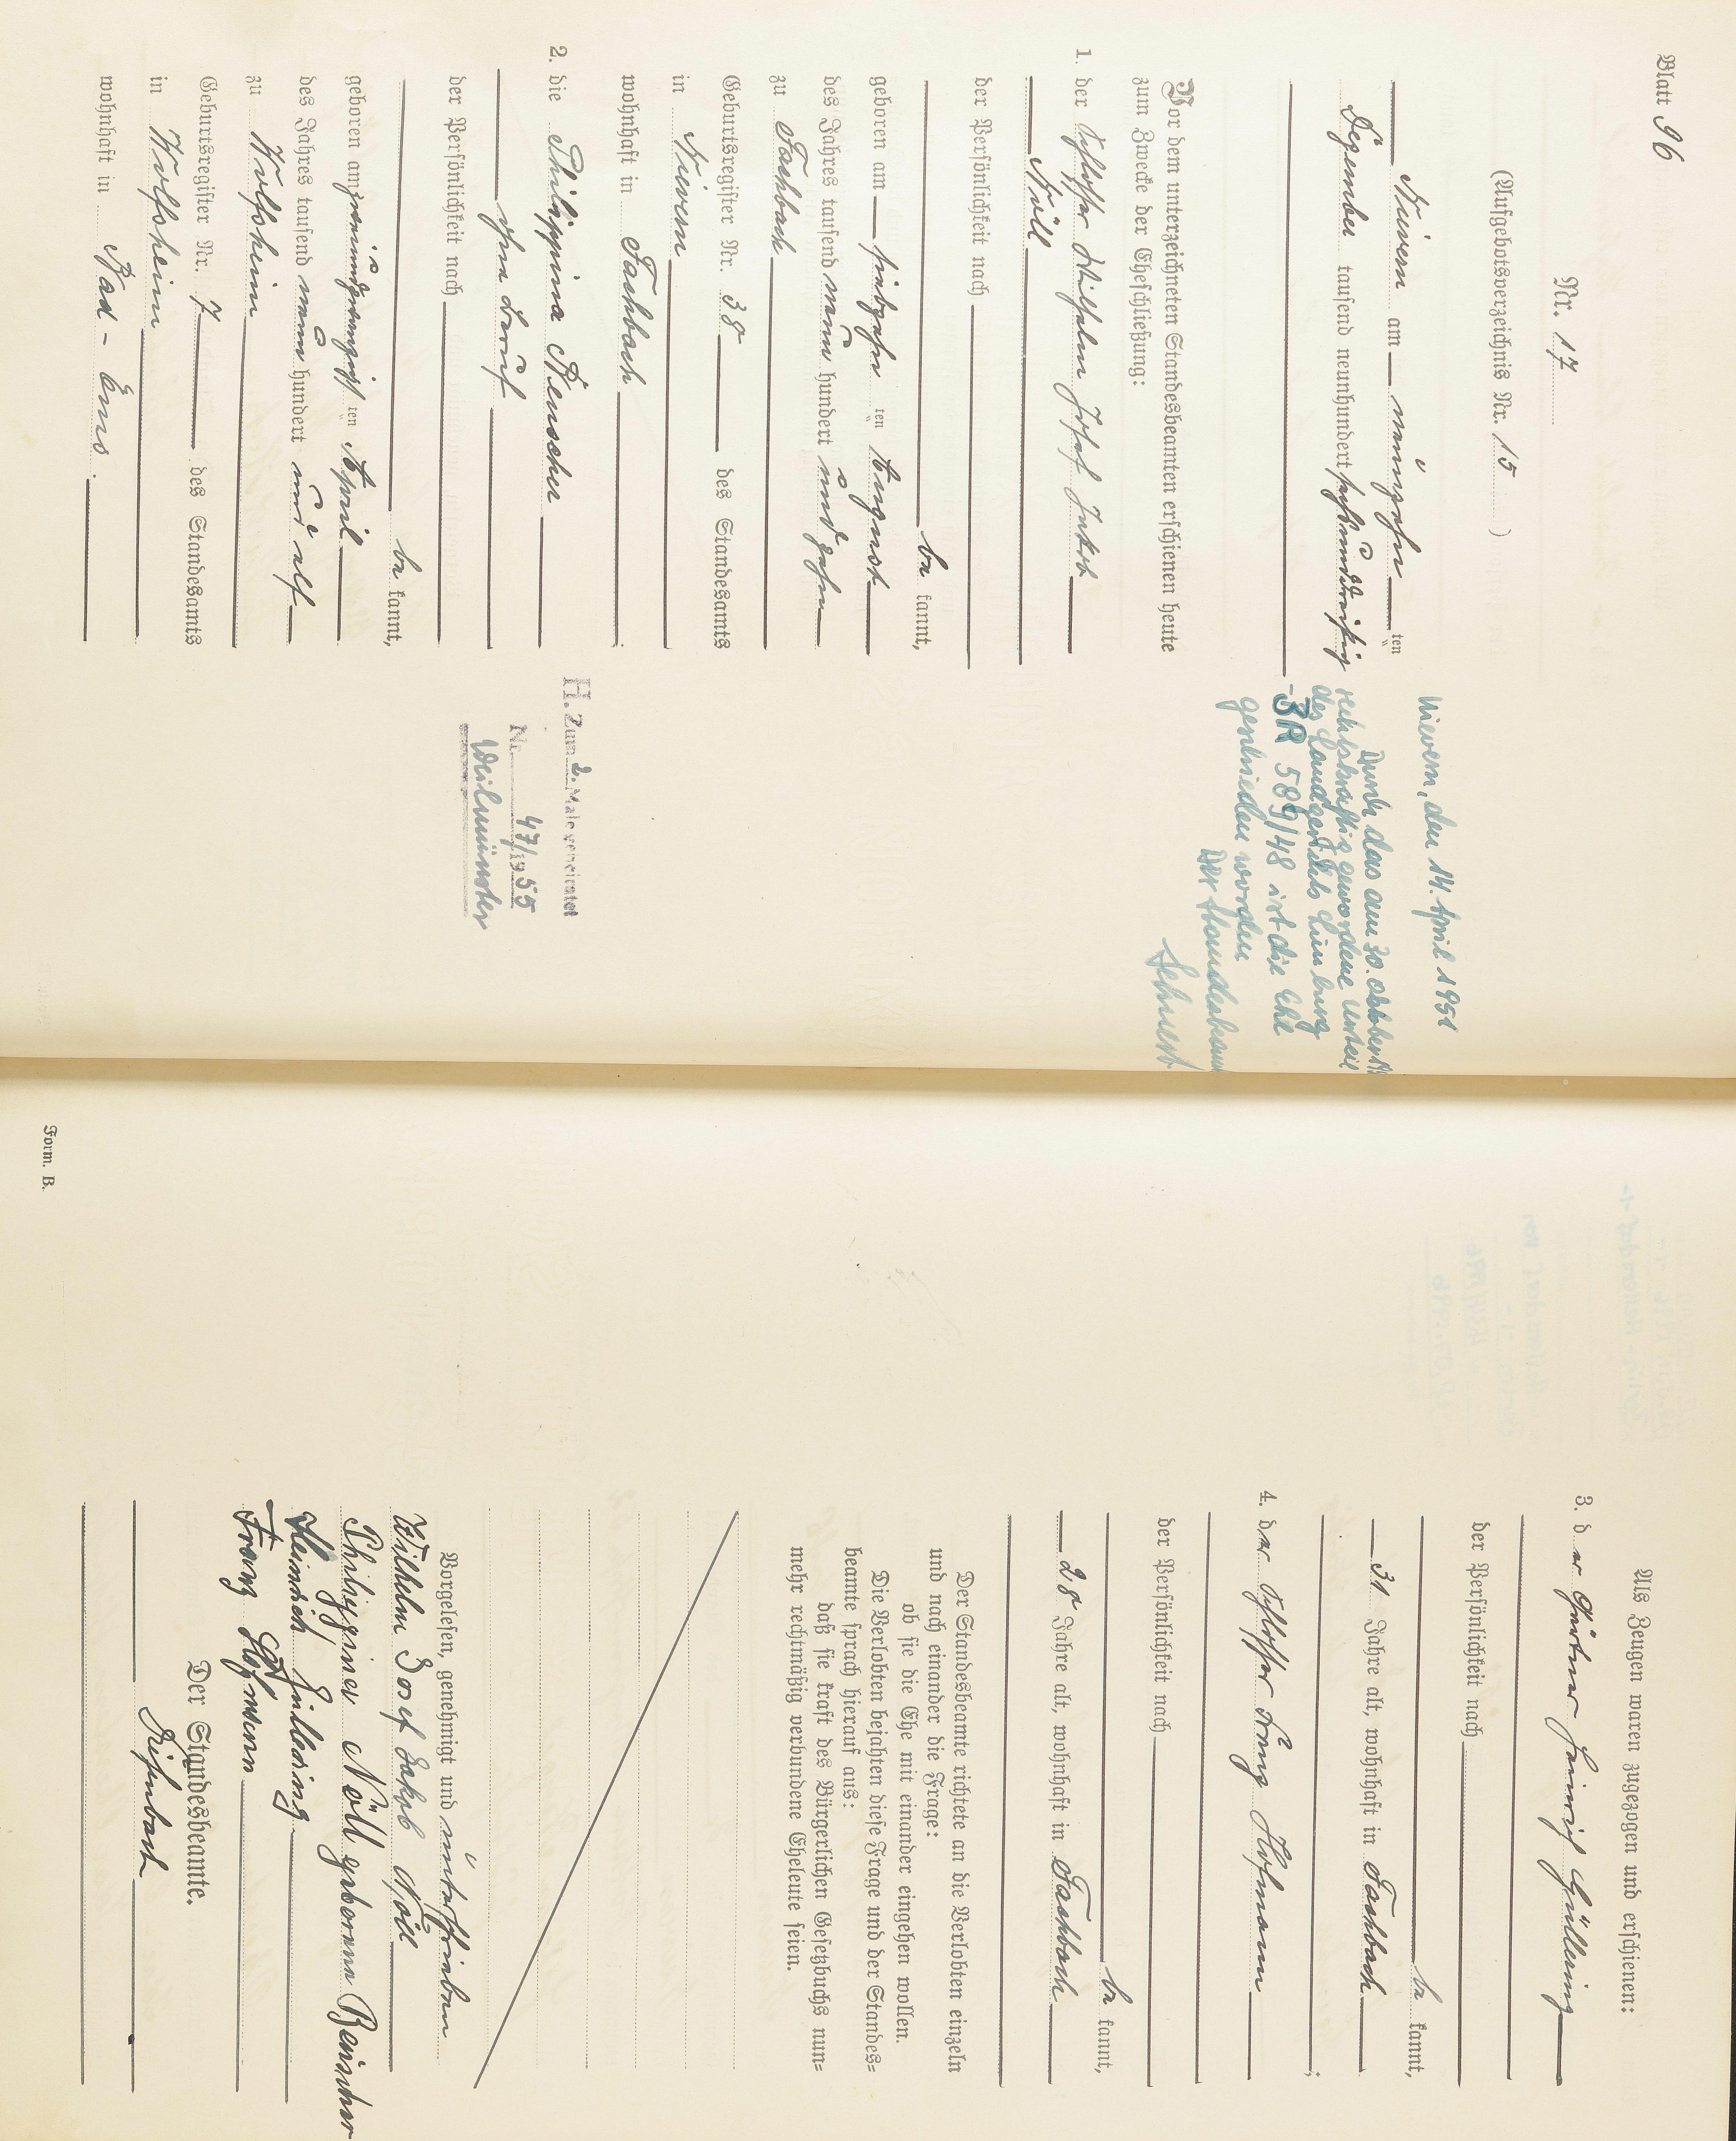 Blatt 96
Nr. 17
(Aufgebotsverzeichnis Nr. 15)
Nievern am neunzehnten
Dezember tausend neunhundert sechsunddreißig
Vor dem unterzeichneten Standesbeamten erschienen heute
zum Zwecke der Eheschließung:
1. der Schlosser Wilhelm Josef Jakob
Nöll
der Persönlichkeit nach
be kannt,
geboren am siebzehn ten August
des Jahres tausend neun hundert und zehn
zu Fachbach
Geburtsregister Nr. 38 des Standesamts
in Nievern
wohnhaft in Fachbach
2. die Philippina Renscher
ohne Beruf
der Persönlichkeit nach
be kannt,
geboren am zweiundzwanzigsten April
des Jahres tausend neun hundert und elf
zu Wolfsheim
Geburtsregister Nr. 7 des Standesamts
in Wolfsheim
wohnhaft in Bad-Ems.
Nievern, den 14. April 1951
Durch das am 30. Oktober
rechtskräftig gewordene Urteil
des Landgerichts Limburg
-3R 589/48 ist die Ehe
geschieden worden
Der Standesbeamte
H. Zum 2. Male verheiratet
Nr. 47/1955
Weilmünster
Als Zeugen waren zugezogen und erschienen:
3. der Gärtner Heinrich Güllering
der Persönlichkeit nach
be kannt,
31 Jahre alt, wohnhaft in Fachbach
;
4. der Schlosser Franz Hofmann
der Persönlichkeit nach
be kannt,
28 Jahre alt, wohnhaft in Fachbach
Der Standesbeamte richtete an die Verlobten einzeln
und nach einander die Frage:
ob sie die Ehe mit einander eingehen wollen.
Die Verlobten bejahten diese Frage und der Standes=
beamte sprach hierauf aus:
daß sie kraft des Bürgerlichen Gesetzbuchs nun=
mehr rechtmäßig verbundene Eheleute seien.
Vorgelesen, genehmigt und unterschrieben
Wilhelm Josef Jakob Nöll
Philippina Nöll geborene Renscher
Heinrich Güllering
Franz Hofmann
Der Standesbeamte.
Form. B.